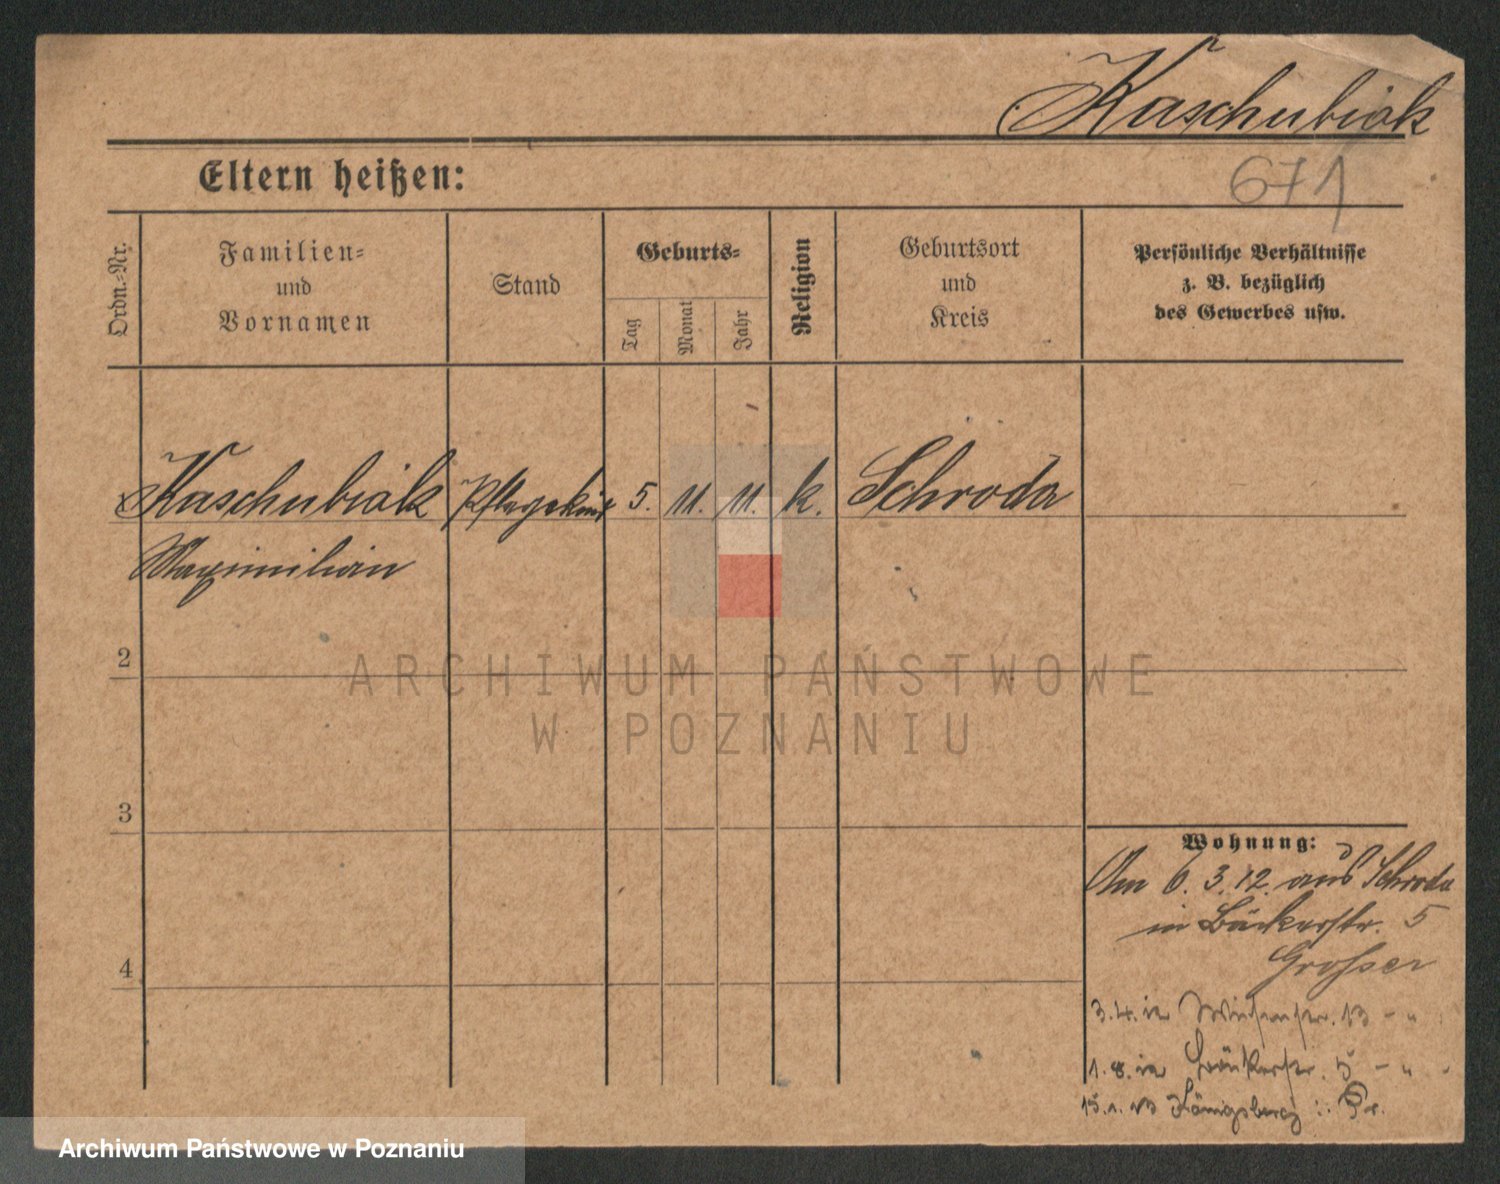 Kaschubiak
671
Eltern heißen:
Ordn.-Nr.
Familien-
und
Vornamen
Stand
Geburts-
Tag
Monat
Jahr
Religion
Geburtsort
und
Kreis
Persönliche Verhältnisse
z. B. bezüglich
des Gewerbes usw.
Kaschubiak Pflegekind 5. 11. 11. k. Schroda
Maximilian
2
3
4
Wohnung:
Am 6.3.12. aus Schroda
in Bäckerstr. 5
Grosser
3.4. in Wiesenstr. 13 - "
1.8. in Bäckerstr. 5 - "
15.1.13 Königsberg i. Pr.
ARCHIWUM PAŃSTWOWE
W POZNANIU
Archiwum Państwowe w Poznaniu